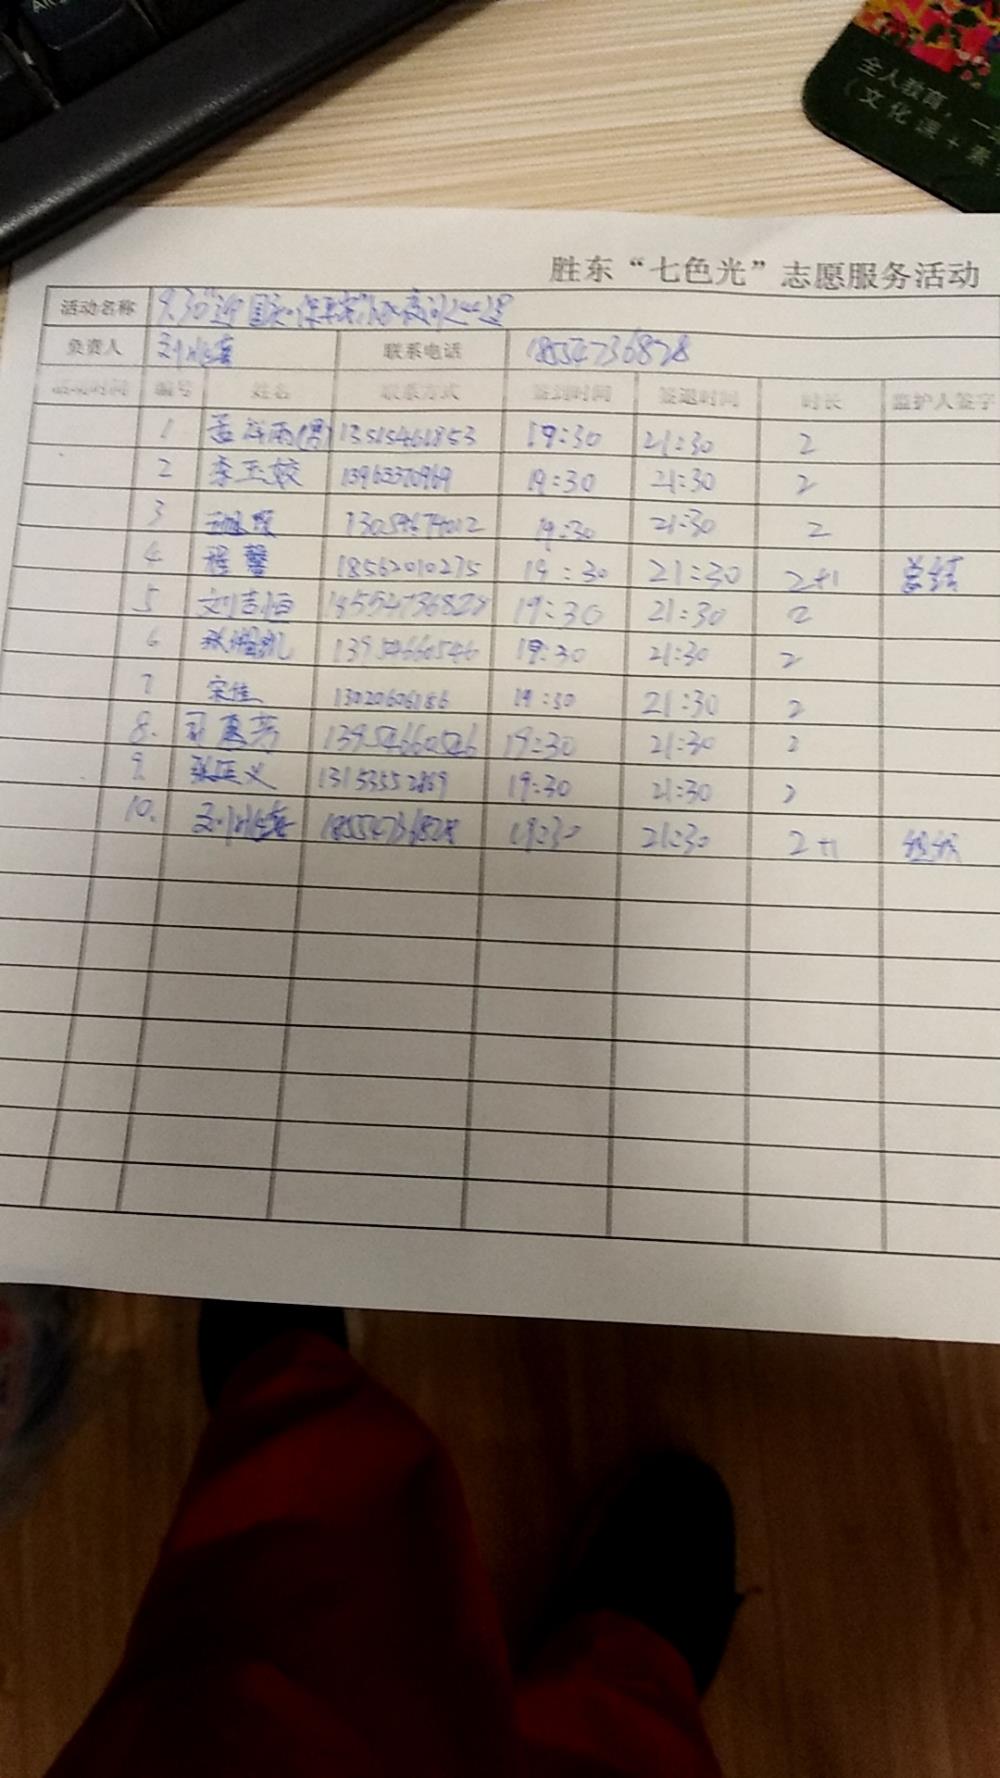 全人教育,一
(文化课+素
胜东“七色光”志愿服务活动
活动名称 9.30"迎国庆·保平安"
负责人 联系电话 18554736828
编号 姓名 联系方式 签到时间 签退时间 时长 监护人签字
1 孟祥雨(男) 13515461853 19:30 21:30 2
2 李玉姣 13963370969 19:30 21:30 2
3 13054674012 19:30 21:30 2
4 程馨 18562010275 19:30 21:30 2+1 总结
5 刘吉恒 18554736828 19:30 21:30 2
6 13954660546 19:30 21:30 2
7 宋佳 13020606186 19:30 21:30 2
8. 司惠芳 13954660546 19:30 21:30 2
9. 张匡义 13153552869 19:30 21:30 2
10. 18554736828 19:30 21:30 2+1 组织